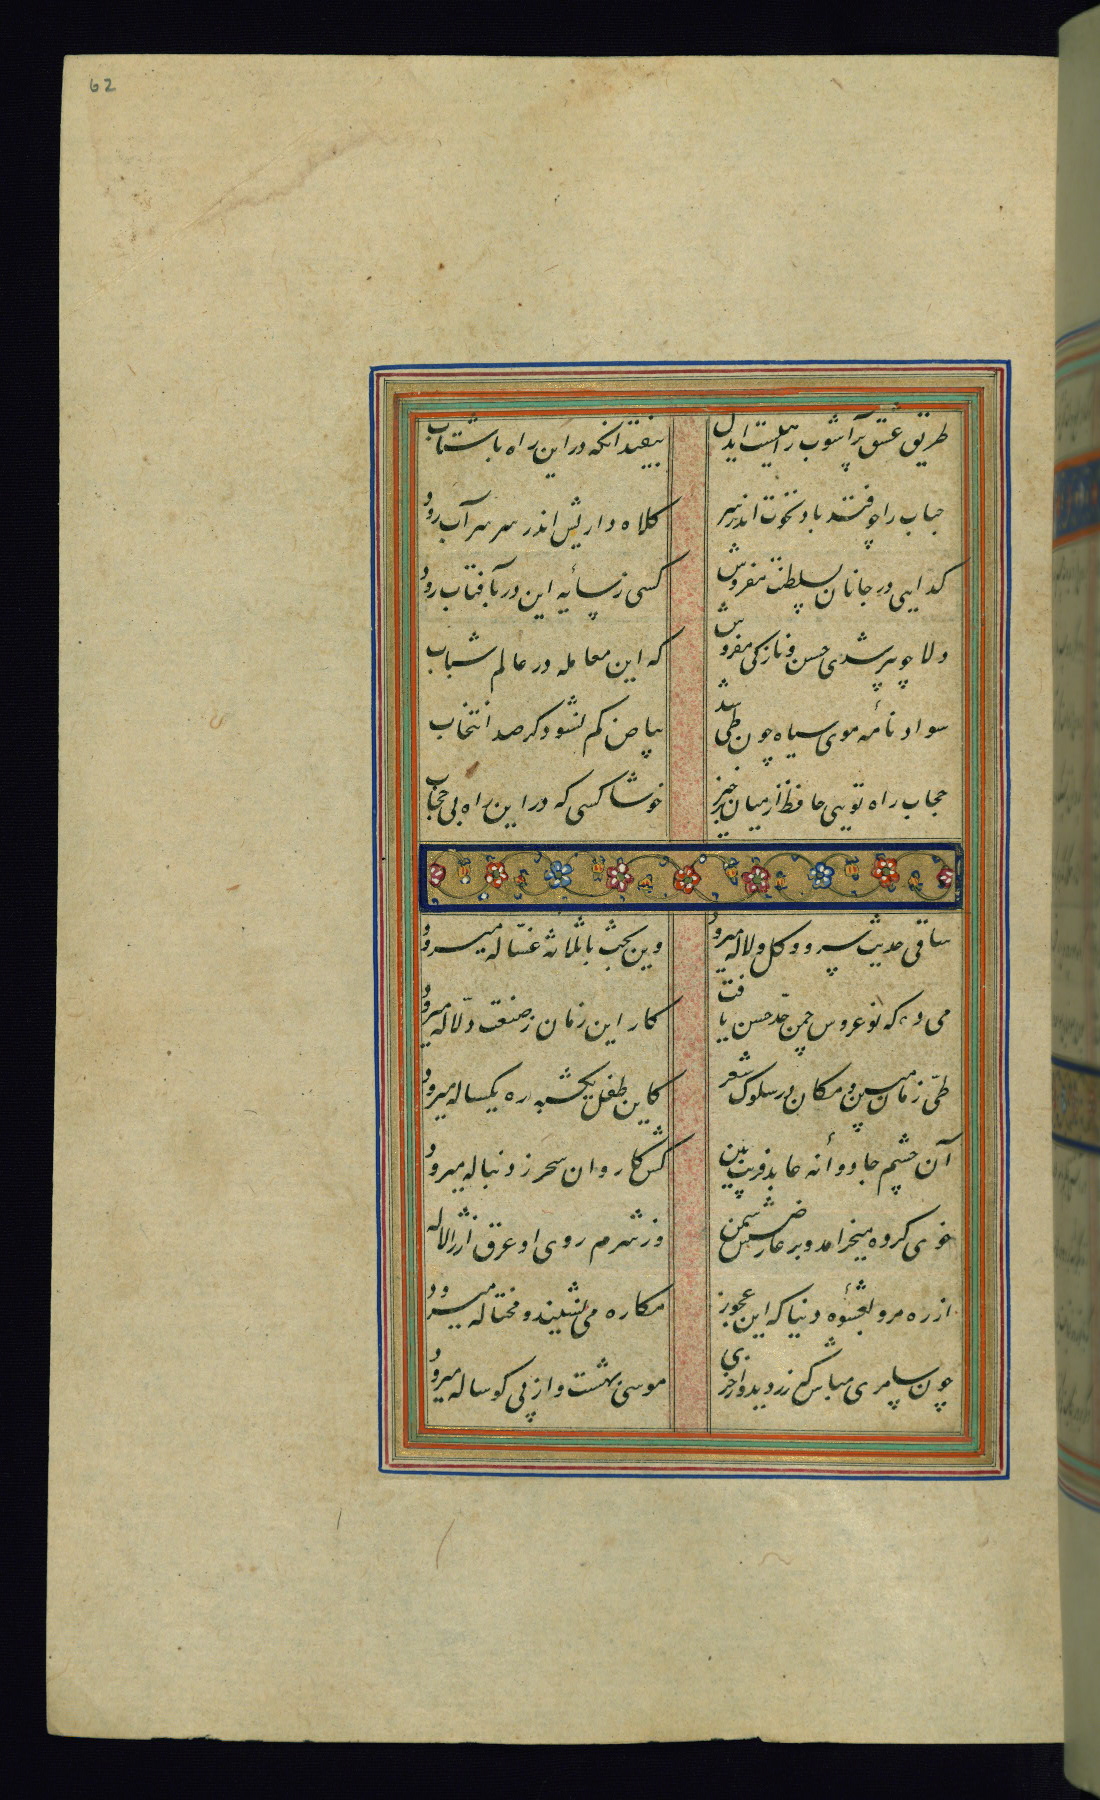 62
طریق عشق پرآشوب راهیست ایدل بیفتد انکه در این راه باشتاب
حباب را چو فتد باد نخوت اندر سر کلاه داریش اندر سر سرآب رود
کدایی در جانان بسلطنت مفروش کسی ز سایه این در بآفتاب رود
دلا چو پیر شدی حسن و نازکی مفروش که این معامله در عالم شباب
سواد نامه موی سیاه چون طی شد بیاض کم نشود کر صد انتخاب
حجاب راه تویی حافظ از میان برخیز خوشا کسی که در این راه بی حجاب
ساقی حدیث سرو و کل و لاله میرود وین بحث با ثلاثه غسّاله میرود
می ده که نو عروس چمن حدّ حسن یافت کار این زمان ز صنعت دلّاله میرود
طیّ زمان ببین و مکان در سلوک شعر کاین طفل یکشبه ره یکساله میرود
آن چشم جادوانه عابد فریب بین کش کاروان سحر ز دنباله میرود
خوی کرده میخرامد و بر عارض سمن وز شرم روی او عرق از ژاله
از ره مرو بعشوه دنیا که این عجوز مکاره می نشیند و محتاله میرود
چون سامری مباش که زر دید و از خری موسی بهشت و از پی کوساله میرود